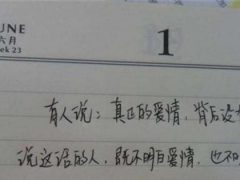 JUNE
六月
eek 23
1
有人说:真正的爱情,背后没
说这话的人,既不明白爱情,也不